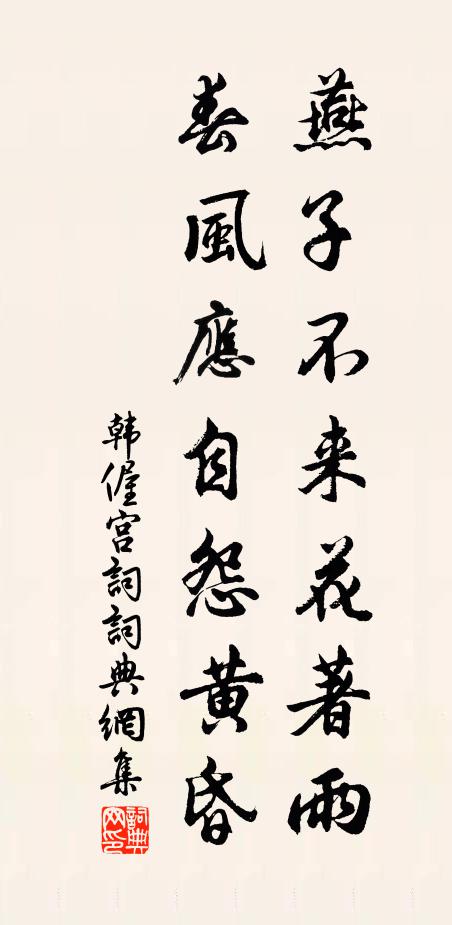 燕子不来花著雨
春風應自怨黄昏
韩偓宫詞詞典網集
詞典
网印